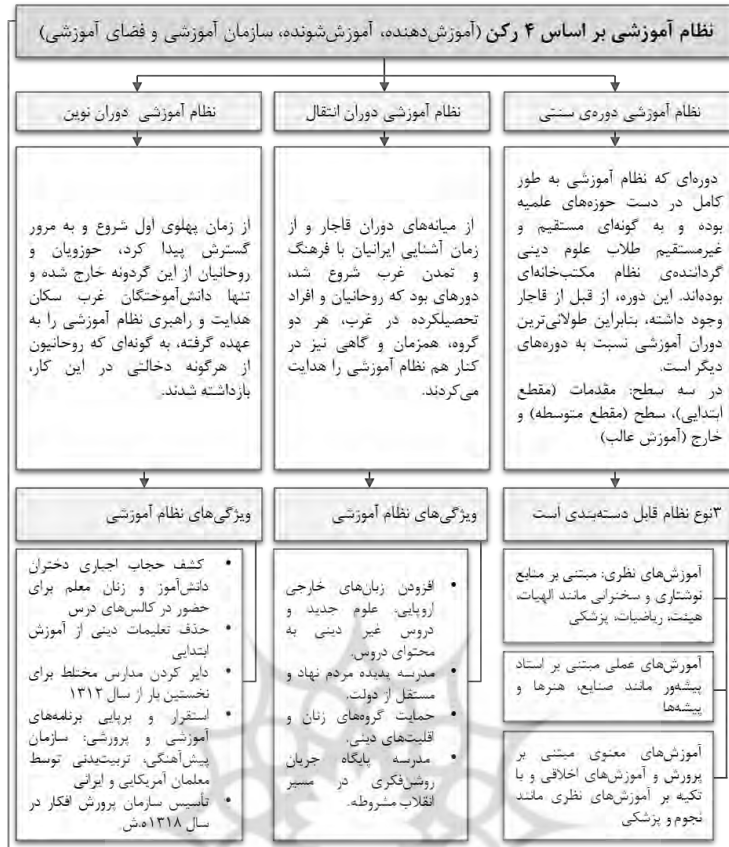 نظام آموزشی بر اساس ۴ رکن (آموزش‌دهنده، آموزش‌شونده، سازمان آموزشی و فضای آموزشی)
نظام آموزشی دوره‌ی سنتی
دوره‌ای که نظام آموزشی به طور
کامل در دست حوزه‌های علمیه
بوده و به گونه‌ای مستقیم و
غیرمستقیم طلاب علوم دینی
گرداننده‌ی نظام مکتب‌خانه‌ای
بوده‌اند. این دوره، از قبل از قاجار
وجود داشته، بنابراین طولانی‌ترین
دوران آموزشی نسبت به دوره‌های
دیگر است.
در سه سطح: مقدمات (مقطع
ابتدایی)، سطح (مقطع متوسطه) و
خارج (آموزش عالب)
۳نوع نظام قابل دسته‌بندی است
آموزش‌های نظری: مبتنی بر منابع
نوشتاری و سخنرانی مانند الهیات،
هیئت، ریاضیات، پزشکی
آمورش‌های عملی مبتنی بر استاد
پیشه‌ور مانند صنایع، هنرها و
پیشه‌ها
آموزش‌های معنوی مبتنی بر
پرورش و آموزش‌های اخلاقی و با
تکیه بر آموزش‌های نظری مانند
نجوم و پزشکی
نظام آموزشی دوران انتقال
از میانه‌های دوران قاجار و از
زمان آشنایی ایرانیان با فرهنگ
و تمدن غرب شروع شد،
دوره‌ای بود که روحانیان و افراد
تحصیلکرده در غرب، هر دو
گروه، همزمان و گاهی نیز در
کنار هم نظام آموزشی را هدایت
می‌کردند.
ویژگی‌های نظام آموزشی
• افزودن زبان‌های خارجی
اروپایی، علوم جدید و
دروس غیر دینی به
محتوای دروس.
• مدرسه پدیده مردم نهاد و
مستقل از دولت.
• حمایت گروه‌های زنان و
اقلیت‌های دینی.
• مدرسه پایگاه جریان
روشن‌فکری در مسیر
انقلاب مشروطه.
نظام آموزشی دوران نوین
از زمان پهلوی اول شروع و به مرور
گسترش پیدا کرد، حوزویان و
روحانیان از این گردونه خارج شده و
تنها دانش‌آموختگان غرب سکان
هدایت و راهبری نظام آموزشی را به
عهده گرفته، به گونه‌ای که روحانیون
از هرگونه دخالتی در این کار،
بازداشته شدند.
ویژگی‌های نظام آموزشی
• کشف حجاب اجباری دختران
دانش‌آموز و زنان معلم برای
حضور در کالس‌های درس
• حذف تعلیمات دینی از آموزش
ابتدایی
• دایر کردن مدارس مختلط برای
نخستین بار از سال ۱۳۱۲
• استقرار و برپایی برنامه‌های
آموزشی و پرورشی: سازمان
پیش‌آهنگی، تربیت‌بدنی توسط
معلمان آمریکایی و ایرانی
• تأسیس سازمان پرورش افکار در
سال ۱۳۱۸ه.ش